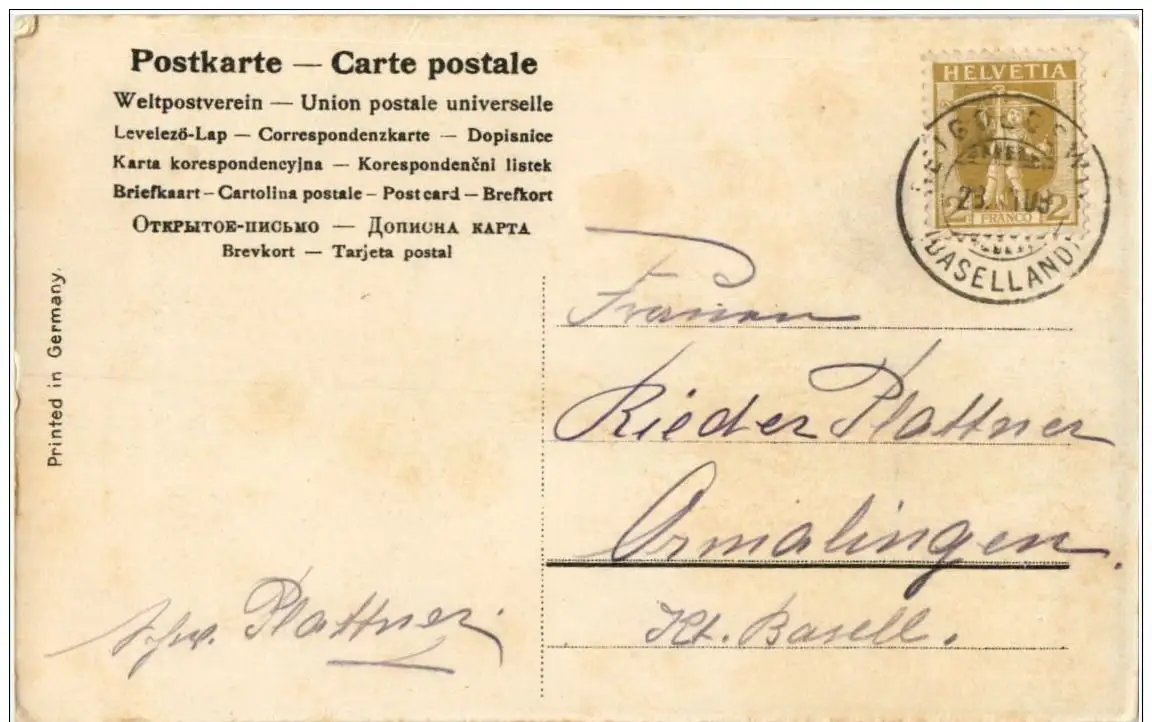 Postkarte — Carte postale
Weltpostverein — Union postale universelle
Levelező-Lap — Correspondenzkarte — Dopisnice
Karta korespondencyjna — Korespondenční listek
Briefkaart – Cartolina postale – Post card – Brefkort
Открытое-письмо — Дописна карта
Brevkort — Tarjeta postal
Printed in Germany.
HELVETIA
2 FRANCO 2
REIGOLDSWIL
(BASELLAND)
Rieder Plattner
Ormalingen.
Kt. Basell.
Plattner.